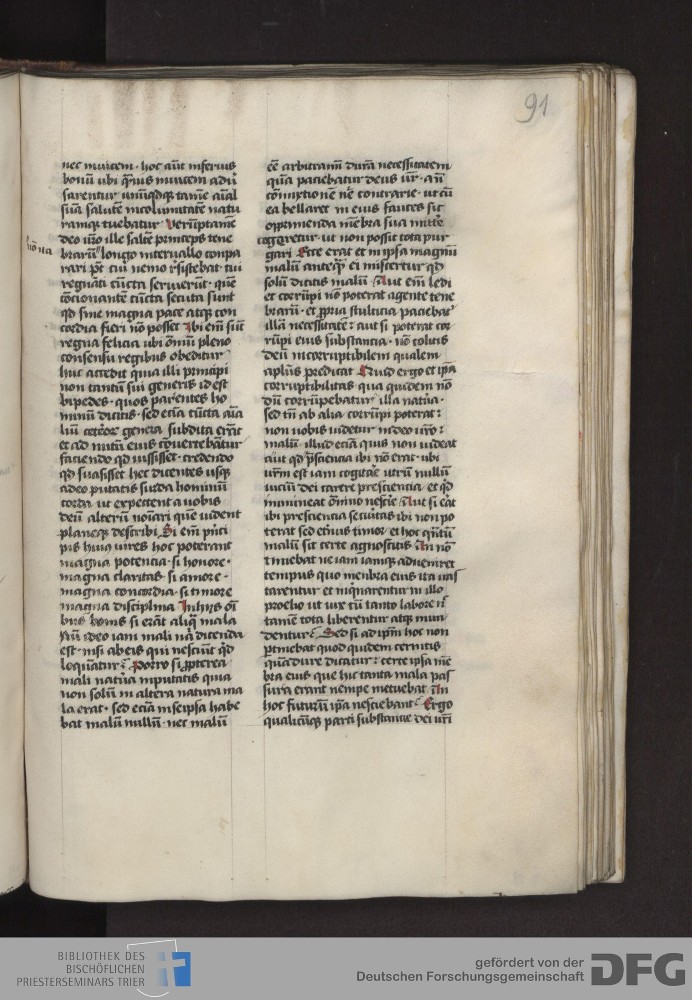 91
nec inuicem · hoc aūt inferius
bonū ubi
sarentur unūqdqꝫ tamē aīal
suā salutē incolumitatē natu
ramqꝫ tuebatur Verūptamē
deo ille saltē princeps tene
brarū longo interuallo conpa
rari pōt cui nemo resistebat cui
regnāti cūcta seruierūt · quē
cōcionantē cūcta secuta sunt
qd sine magna pace atqꝫ con
cordia fieri nō posset Ibi em̄ sūt
regna felicia ubi omniū pleno
consensu regibus obeditur
huc accedit qua illi principi
non tantū sui generis id est
bipedes · quos parentes ho
minū dicitis · sed etiā cūcta aīa
liū ceterorū genera subdita erāt
et ad nutū eius cōuertebātur
faciendo qd iussisset · credendo
qd suasisset hec dicentes usqꝫ
adeo putatis surda hominū
corda ut expectent a uobis
deū alterū noīari quē uident
planeqꝫ describi Si em̄ prīci
pis huius uires hoc poterant
magna potencia · si honore ·
magna claritas · si amore ·
magna concordia · si timore
magna disciplina In hijs oī
bus bonis si erāt aliqua mala
nū ideo iam mali nā dicenda
est · nisi ab eis qui nesciūt qd
loquātur Porro si ppterea
mali natura inputatis quia
non solū in altera natura ma
la erat · sed etiā in seipsa habe
bat malū nullū · nec malū
bona
eē arbitramī durā necessitatem
qua paciebatur deus ur̄ · an̄
cōmixtionē nr̄e contrarie · ut cū
ea bellaret in eius fauces sic
opprimenda mēbra sua mitte
cogaretur · ut non possit tota pur
gari Ecce erat et in ipsa magnū
malū anteqͣ ei miscertur qd
solū dicitis malū Aut em̄ ledi
et corrūpi nō poterat agente tene
brarū · et ppria stulticia paciebat
illā necessitatē : aut si poterat cor
rūpi eius substancia · nō colitis
deū incorruptibilem qualem
aplūs predicat Quid ergo et ipā
corruptibilitas qua quidem nō
dū corrūpebatur illa natura ·
sed tn̄ ab alia corrūpi poterat :
non uobis uidetur in deo uro :
malū illud etiā quis non uideat
aūt qd prescientia ibi nō erat · ubi
urm̄ est iam cogitare utrū nullū
uiciū dei carere prescientia · et qd
immineat omīno nescire Aut si erat
ibi prescientia securitas ibi non po
terat sed timor · et hoc quantū
malū sit certe agnoscitis An nō
timebat ne iam iamqꝫ adueniret
tempus quo menbra eius ita uas
tarentur et inquinarentur in illo
proelio ut uix cū tanto labore
tamē tota liberentur atqꝫ mun
dentur Sed si ad ipm̄ hoc non
ptinebat quod quidem cernitis
quā dure dicatur : certe ipsa mē
bra eius que hic tanta mala pas
sura erant nempe metuebat An
hoc futurū ipa nesciebant Ergo
qualicūqꝫ parti substantie dei uri
BIBLIOTHEK DES
BISCHÖFLICHEN
PRIESTERSEMINARS TRIER
gefördert von der
Deutschen Forschungsgemeinschaft
DFG